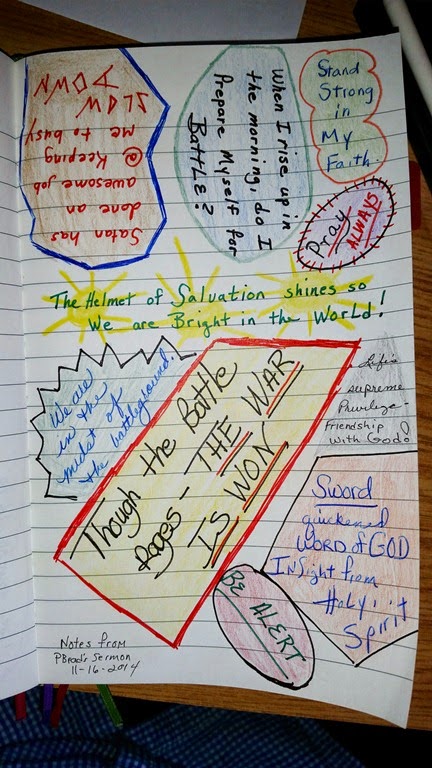 Satan has
done an
awesome job
@ Keeping
me to busy
SLOW
DOWN
When I rise up in
the morning, do I
Prepare Myself for
BATTLE?
Stand
Strong
in
My
Faith.
Pray
ALWAYS
The Helmet of Salvation shines so
We are Bright in the World!
We are
in the
midst of
the battleground.
Though the Battle
Rages - THE WAR
IS WON
Life's
supreme
Privilege -
Friendship
with God!
Sword
quickened
WORD of GOD
INsight from
Holy
Spirit
BE ALERT
Notes from
PBrad's Sermon
11-16-2014